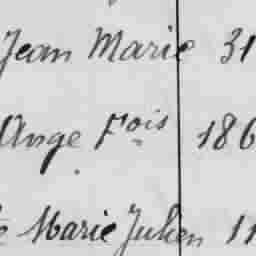 Jean Marie 31
Ange Fois 186
Marie Julien 11